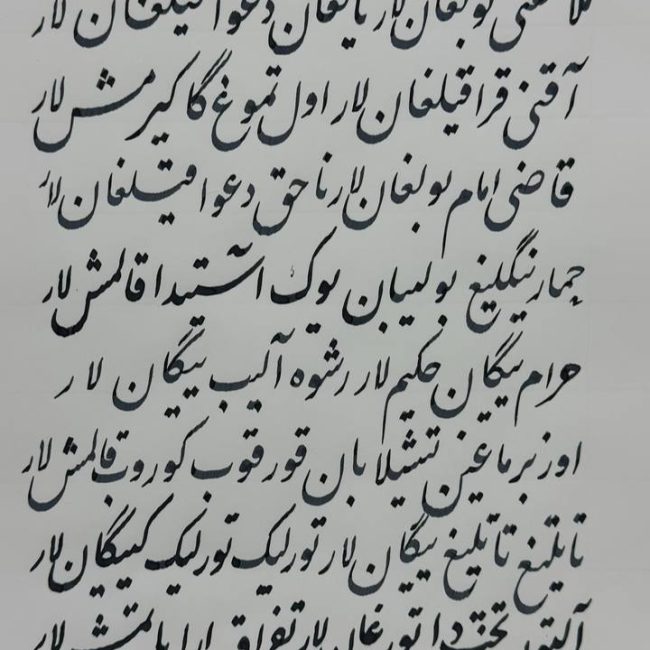 ملا مفتی بولغان لار یالغان دعوا قیلغان لار
آقنی قرا قیلغان لار اول تموغ گا کیرمش لار
قاضی امام بولغان لار ناحق دعوا قیلغان لار
حمار نیگلیغ بولیبان یوک آستیدا قالمش لار
حرام ییگان حکیم لار رشوه آلیب ییگان لار
اوز برماغین تیشلابان قورقوب کوروب قالمش لار
تاتلیغ تاتلیغ ییگان لار تورلیک تورلیک کییگان لار
آلتون تختدا اتورغان لار تفراق ارا یاتمش لار